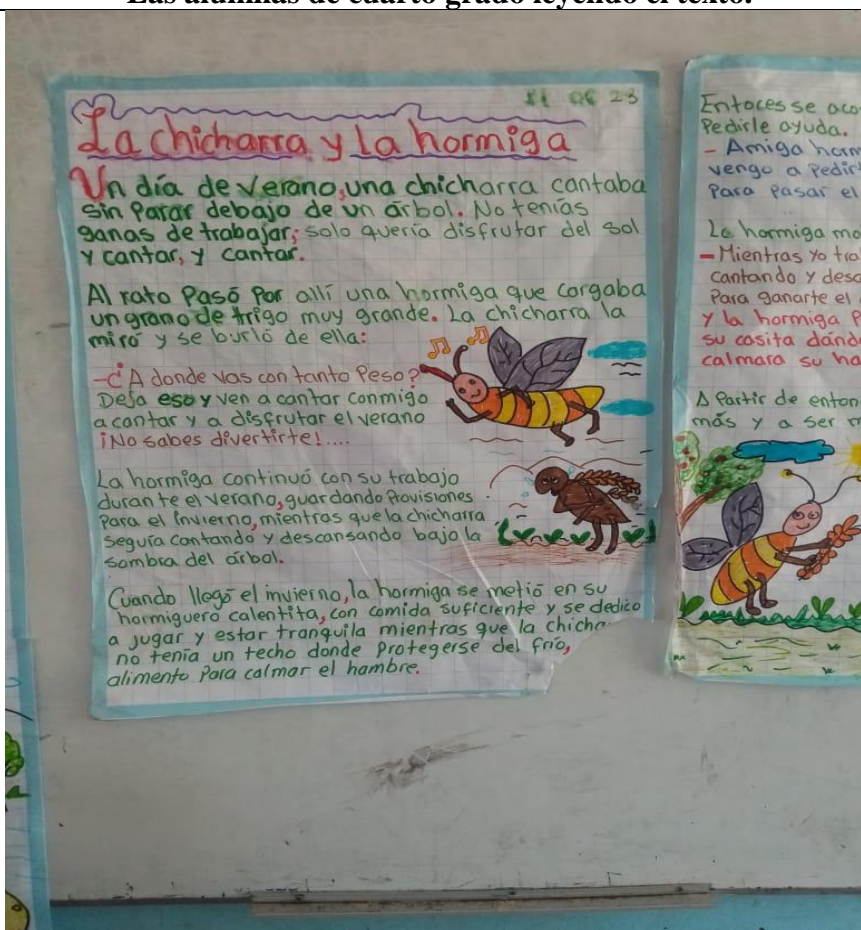 Las alumnas de cuarto grado leyendo el texto.
23
La chicharra y La hormiga
Un día de verano, una chicharra cantaba
sin Parar debajo de un árbol. No tenías
ganas de trabajar; solo quería disfrutar del sol
y cantar, y cantar.
Al rato Pasó Por allí una hormiga que cargaba
un grano de trigo muy grande. La chicharra la
miró y se burló de ella:
-¿A donde vas con tanto Peso?
Deja eso y ven a cantar conmigo
a cantar y a disfrutar el verano
¡No sabes divertirte!....
La hormiga continuó con su trabajo
durante el verano, guardando Provisiones
Para el invierno, mientras que la chicharra
seguía cantando y descansando bajo la
sombra del árbol.
Cuando llegó el invierno, la hormiga se metió en su
hormiguero calentita, con comida suficiente y se dedico
a jugar y estar tranquila mientras que la chicha
no tenía un techo donde protegerse del frío,
alimento Para calmar el hambre.
Entoces se aco
Pedirle ayuda.
- Amiga horm
vengo a Pedir
Para Pasar el
La hormiga mo
- Mientras Yo tra
cantando y desc
Para ganarte el
y la hormiga P
su casita dand
calmara su ha
A Partir de enton
más y a ser m